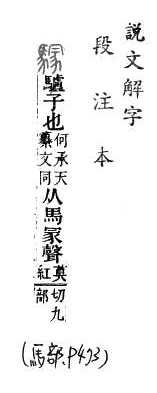 說文解字
段注本
䮵
驢子也何承天纂文同从馬冡聲莫紅切九部
(馬部.P473)